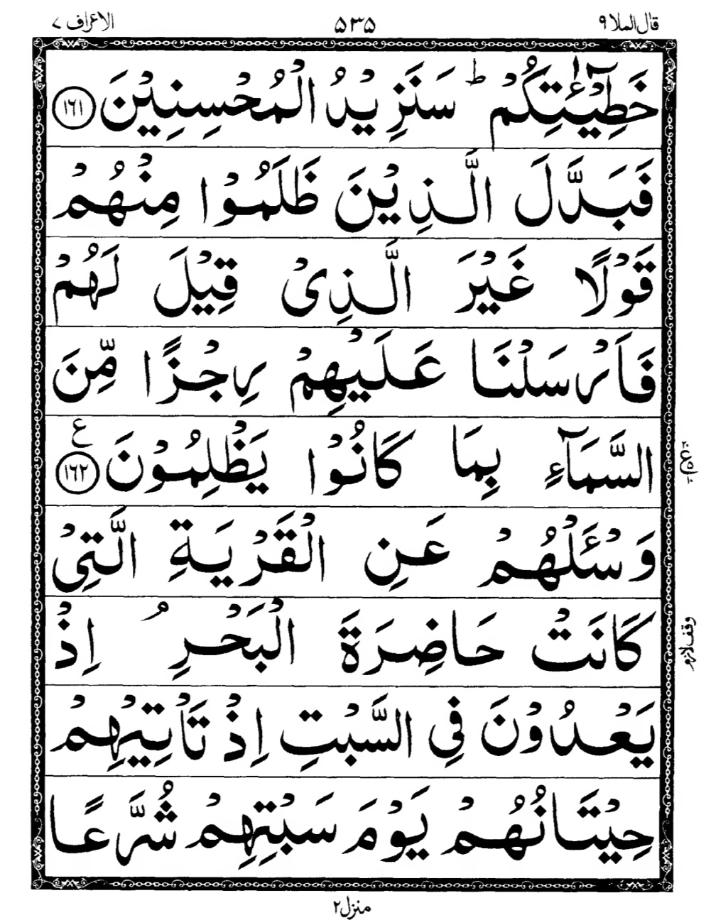 قال الملا ٩ ٥٣٥ الاعراف ٧
خَطِیْٓـٰٔتِكُمْ ؕ سَنَزِیْدُ الْمُحْسِنِیْنَ ﴿١٦١﴾
فَبَدَّلَ الَّذِیْنَ ظَلَمُوْا مِنْهُمْ
قَوْلًا غَیْرَ الَّذِیْ قِیْلَ لَهُمْ
فَاَرْسَلْنَا عَلَیْهِمْ رِجْزًا مِّنَ
السَّمَآءِ بِمَا كَانُوْا یَظْلِمُوْنَ ﴿١٦٢﴾ ع
وَسْـَٔلْهُمْ عَنِ الْقَرْیَةِ الَّتِیْ
كَانَتْ حَاضِرَةَ الْبَحْرِ ۘ اِذْ
وقف لازم
یَعْدُوْنَ فِی السَّبْتِ اِذْ تَاْتِیْهِمْ
حِیْتَانُهُمْ یَوْمَ سَبْتِهِمْ شُرَّعًا
منزل ٢